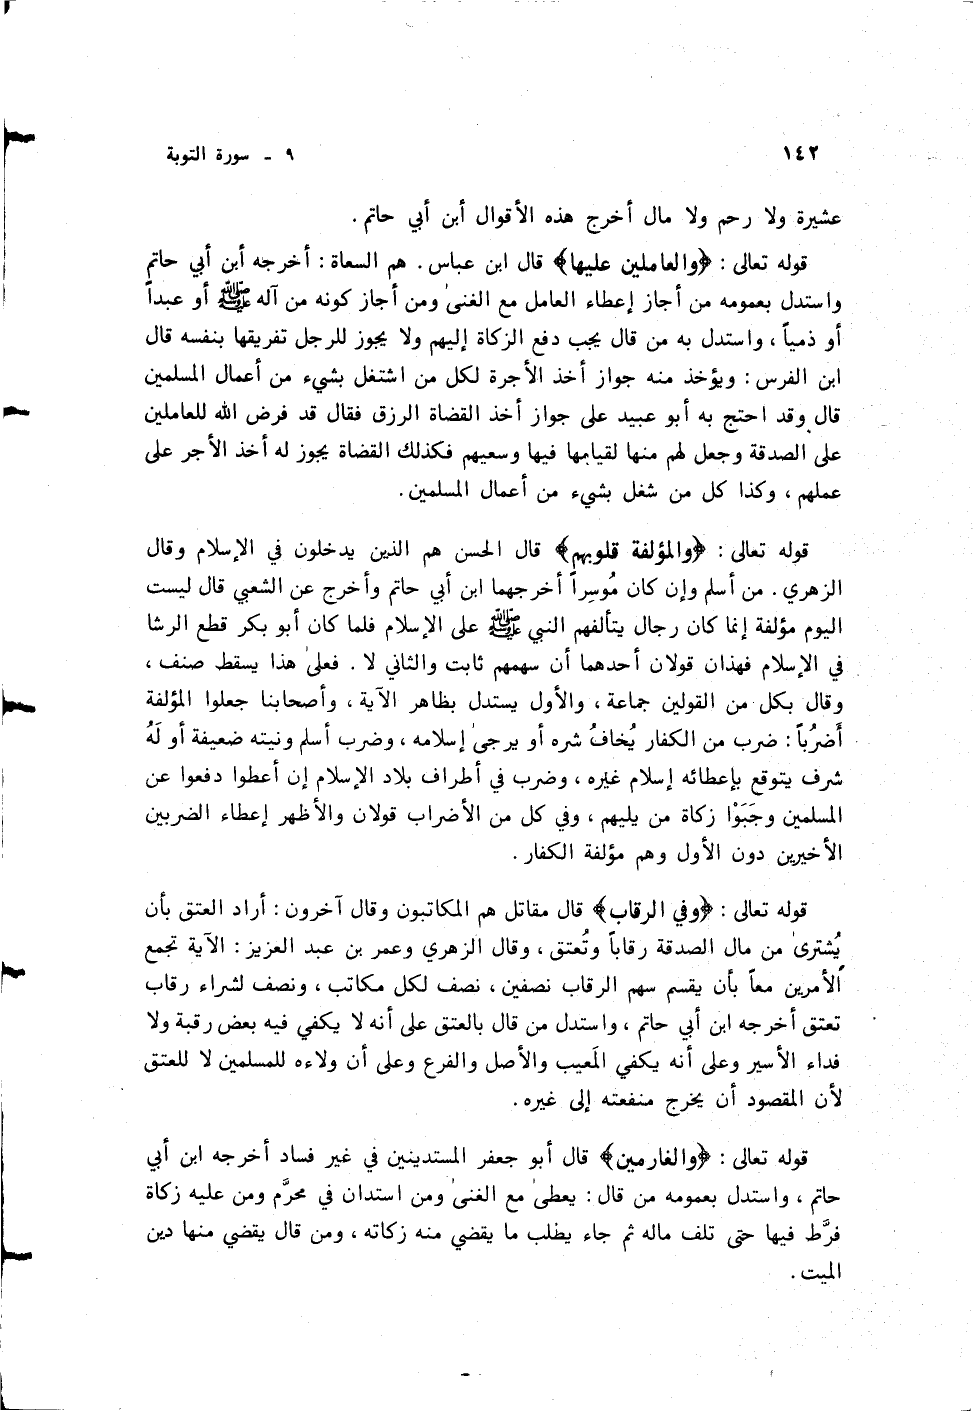 ١٤٢
٩ - سورة التوبة
عشيرة ولا رحم ولا مال أخرج هذه الأقوال أبن أبي حاتم .
قوله تعالى : ﴿والعاملين عليها﴾ قال ابن عباس . هم السعاة : أخرجه أبن أبي حاتم
واستدل بعمومه من أجاز إعطاء العامل مع الغنىٰ ومن أجاز كونه من آله ﷺ أو عبداً
أو ذمياً ، واستدل به من قال يجب دفع الزكاة إليهم ولا يجوز للرجل تفريقها بنفسه قال
ابن الفرس : ويؤخذ منه جواز أخذ الأجرة لكل من اشتغل بشيء من أعمال المسلمين
قال وقد احتج به أبو عبيد على جواز أخذ القضاة الرزق فقال قد فرض الله للعاملين
على الصدقة وجعل لهم منها لقيامها فيها وسعيهم فكذلك القضاة يجوز له أخذ الأجر على
عملهم ، وكذا كل من شغل بشيء من أعمال المسلمين .
قوله تعالى : ﴿والمؤلفة قلوبهم﴾ قال الحسن هم الذين يدخلون في الإسلام وقال
الزهري . من أسلم وإن كان مُوسِراً أخرجهما ابن أبي حاتم وأخرج عن الشعبي قال ليست
اليوم مؤلفة إنما كان رجال يتألفهم النبي ﷺ على الإسلام فلما كان أبو بكر قطع الرشا
في الإسلام فهذان قولان أحدهما أن سهمهم ثابت والثاني لا . فعلىٰ هذا يسقط صنف ،
وقال بكل من القولين جماعة ، والأول يستدل بظاهر الآية ، وأصحابنا جعلوا المؤلفة
أَضرُباً : ضرب من الكفار يُخافُ شره أو يرجىٰ إسلامه ، وضرب أسلم ونيته ضعيفة أو لَهُ
شرف يتوقع بإعطائه إسلام غيره ، وضرب في أطراف بلاد الإسلام إن أعطوا دفعوا عن
المسلمين وجَبَوْا زكاة من يليهم ، وفي كل من الأضراب قولان والأظهر إعطاء الضربين
الأخيرين دون الأول وهم مؤلفة الكفار .
قوله تعالى : ﴿وفي الرقاب﴾ قال مقاتل هم المكاتبون وقال آخرون : أراد العتق بأن
يُشترىٰ من مال الصدقة رقاباً وتُعتق ، وقال الزهري وعمر بن عبد العزيز : الآية تجمع
الأمرين معاً بأن يقسم سهم الرقاب نصفين ، نصف لكل مكاتب ، ونصف لشراء رقاب
تعتق أخرجه ابن أبي حاتم ، واستدل من قال بالعتق على أنه لا يكفي فيه بعض رقبة ولا
فداء الأسير وعلى أنه يكفي المَعيب والأصل والفرع وعلى أن ولاءه للمسلمين لا للعتق
لأن المقصود أن يخرج منفعته إلى غيره .
قوله تعالى : ﴿والغارمين﴾ قال أبو جعفر المستدينين في غير فساد أخرجه ابن أبي
حاتم ، واستدل بعمومه من قال : يعطىٰ مع الغنىٰ ومن استدان في محرَّم ومن عليه زكاة
فرَّط فيها حتى تلف ماله ثم جاء يطلب ما يقضي منه زكاته ، ومن قال يقضي منها دين
الميت .